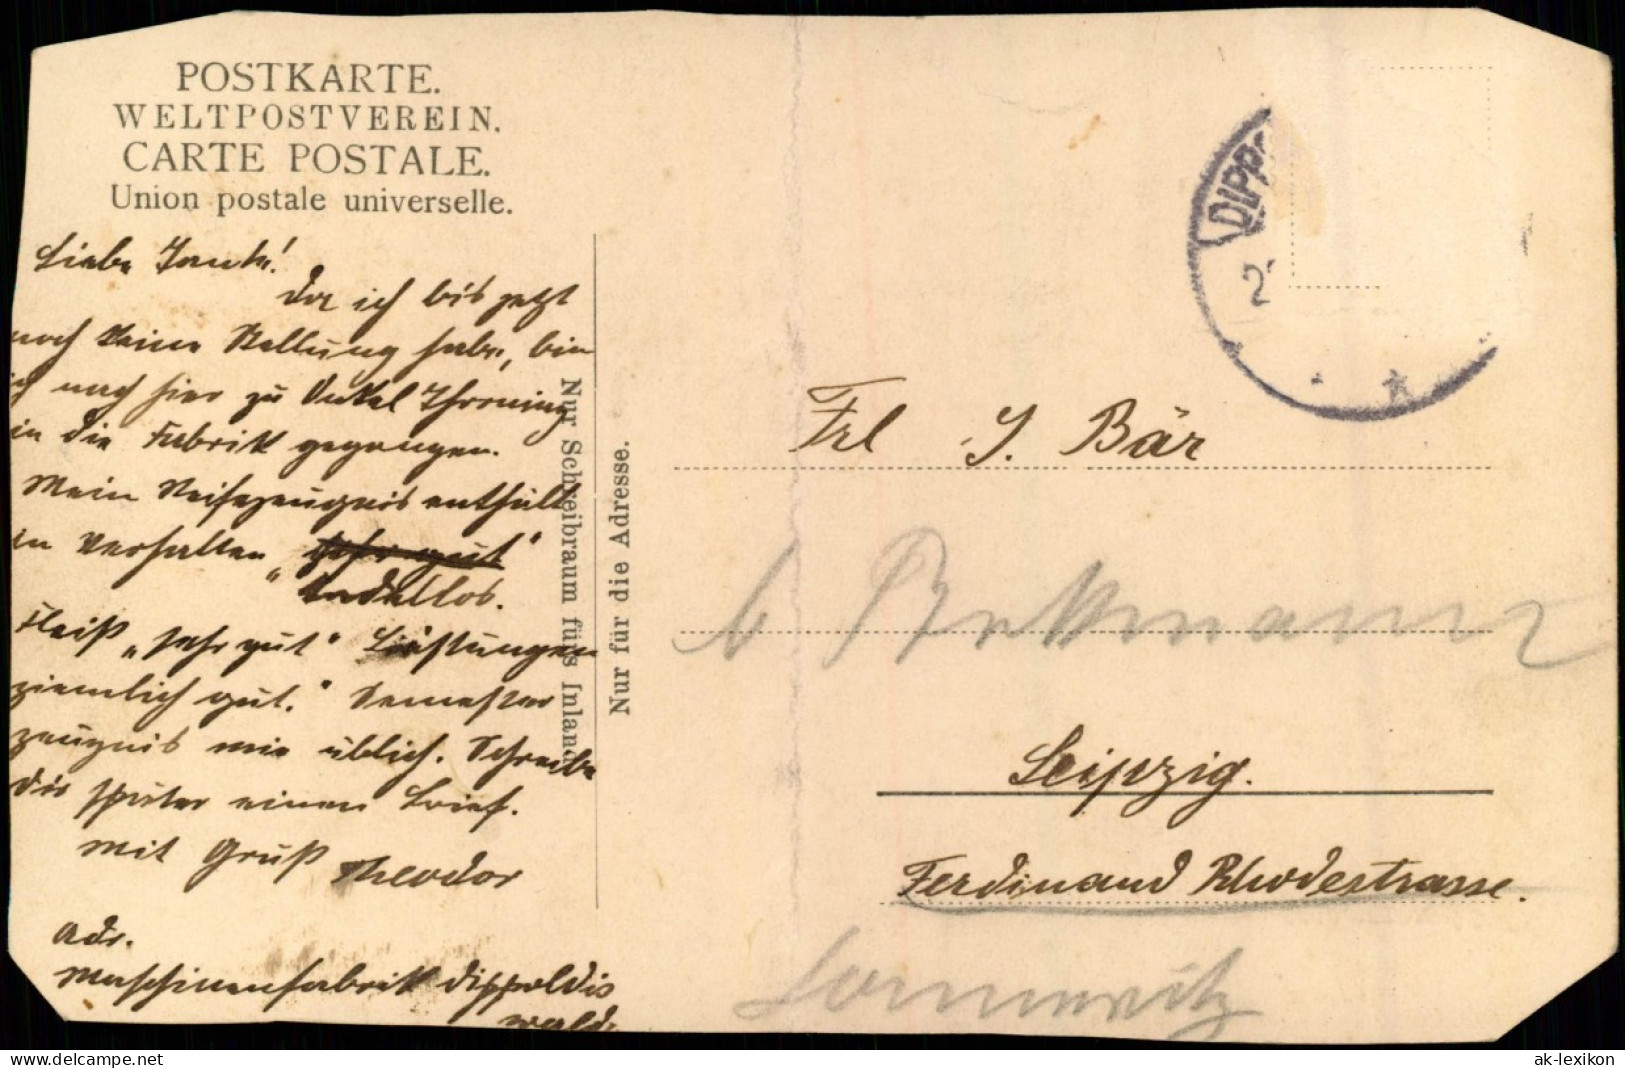 POSTKARTE.
WELTPOSTVEREIN.
CARTE POSTALE.
Union postale universelle.
Liebe Tante!
Da ich bis jetzt
noch keine Stellung habe, bin
ich nach hier zu Onkel
in die Fabrik gegangen.
Mein Reifezeugnis enthält
in Verhalten „sehr gut“
tadellos.
Fleiß „sehr gut“ Leistungen
ziemlich gut.“ Semester
zeugnis wie üblich. Schreibe
Dir später einen Brief.
mit Gruß Theodor
Adr.
Maschinenfabrik Dippoldis
walde
Nur Schreibraum für's Inland
Nur für die Adresse.
DIPPO
2
Frl J. Bär
b
Leipzig.
Ferdinand Rhodestrasse.
ak-lexikon